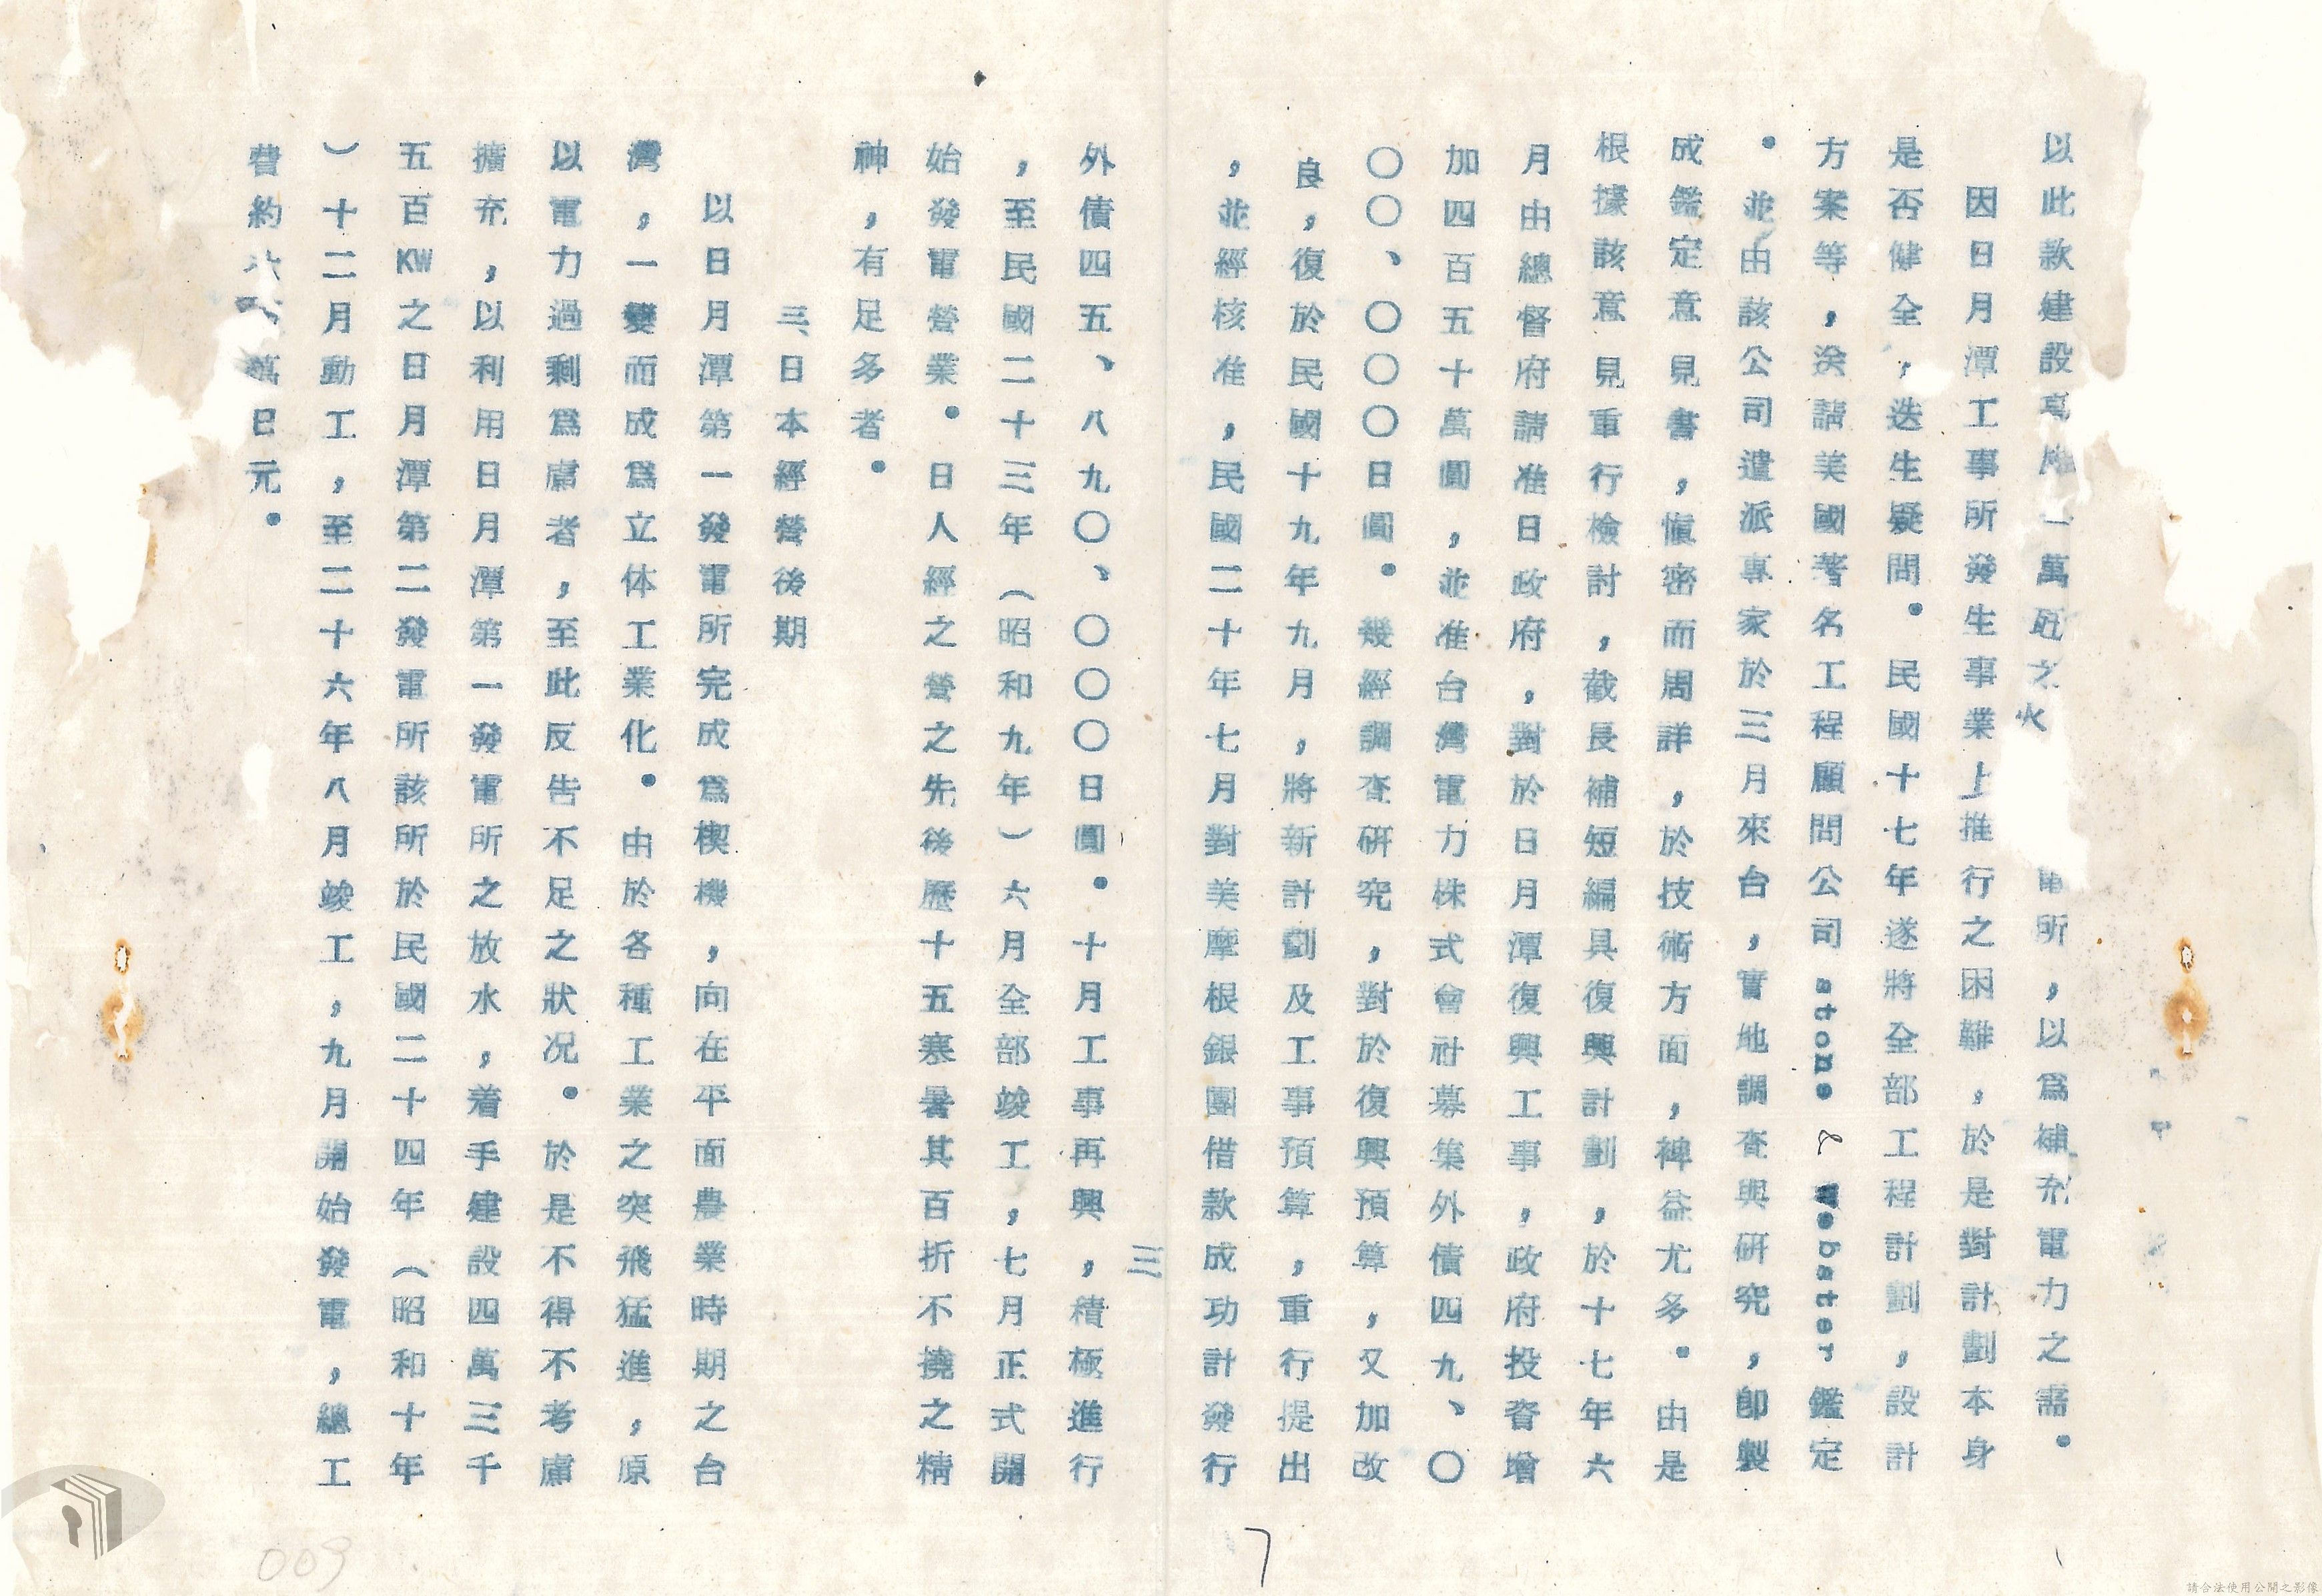 以此款建設高雄一萬瓩之火 電所，以爲補充電力之需。
因日月潭工事所發生事業上推行之困難，於是對計劃本身
是否健全，迭生疑問。民國十七年遂將全部工程計劃，設計
方案等，送請美國著名工程顧問公司 stone & Webster 鑑定
。並由該公司遣派專家於三月來台，實地調查與研究，卽製
成鑑定意見書，愼密而周詳，於技術方面，裨益尤多。由是
根據該意見重行檢討，截長補短編具復興計劃，於十七年六
月由總督府請准日政府，對於日月潭復興工事，政府投資增
加四百五十萬圓，並准台灣電力株式會社募集外債四九、〇
〇〇、〇〇〇日圓。幾經調查研究，對於復興預算，又加改
良，復於民國十九年九月，將新計劃及工事預算，重行提出
，並經核准，民國二十年七月對美摩根銀團借款成功計發行
三
外債四五、八九〇、〇〇〇日圓。十月工事再興，積極進行
，至民國二十三年（昭和九年）六月全部竣工，七月正式開
始發電營業。日人經之營之先後歷十五寒暑其百折不撓之精
神，有足多者。
三、日本經營後期
以日月潭第一發電所完成爲楔機，向在平面農業時期之台
灣，一變而成爲立体工業化。由於各種工業之突飛猛進，原
以電力過剩爲慮者，至此反告不足之狀况。於是不得不考慮
擴充，以利用日月潭第一發電所之放水，着手建設四萬三千
五百KW之日月潭第二發電所該所於民國二十四年（昭和十年
）十二月動工，至二十六年八月竣工，九月開始發電，總工
費約 萬日元。
7
009
請合法使用公開之影像